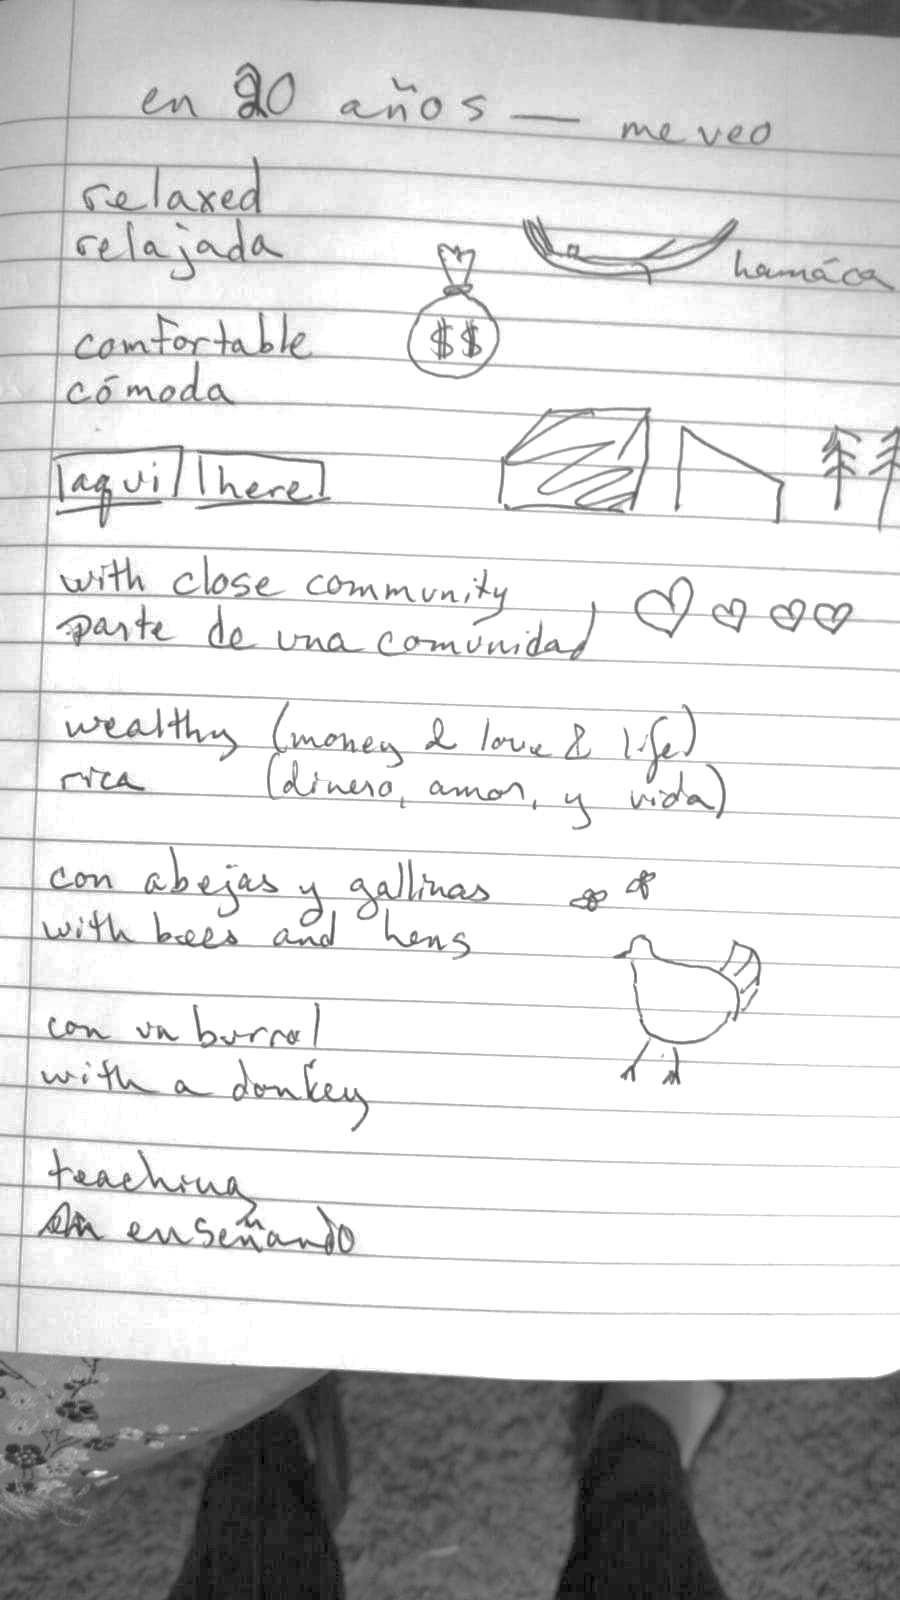 en 20 años — me veo
relaxed
relajada
hamáca
$$
comfortable
cómoda
aqui here
with close community
parte de una comunidad
wealthy (money & love & life)
rica (dinero, amor, y vida)
con abejas y gallinas
with bees and hens
con un burro!
with a donkey
teaching
enseñando